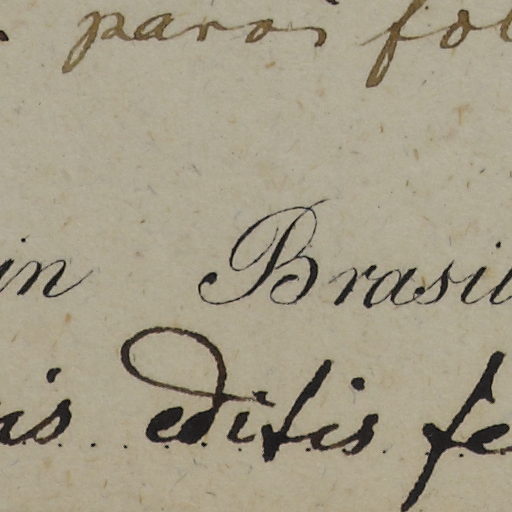 paroi fol
in Brasil
is editis fe